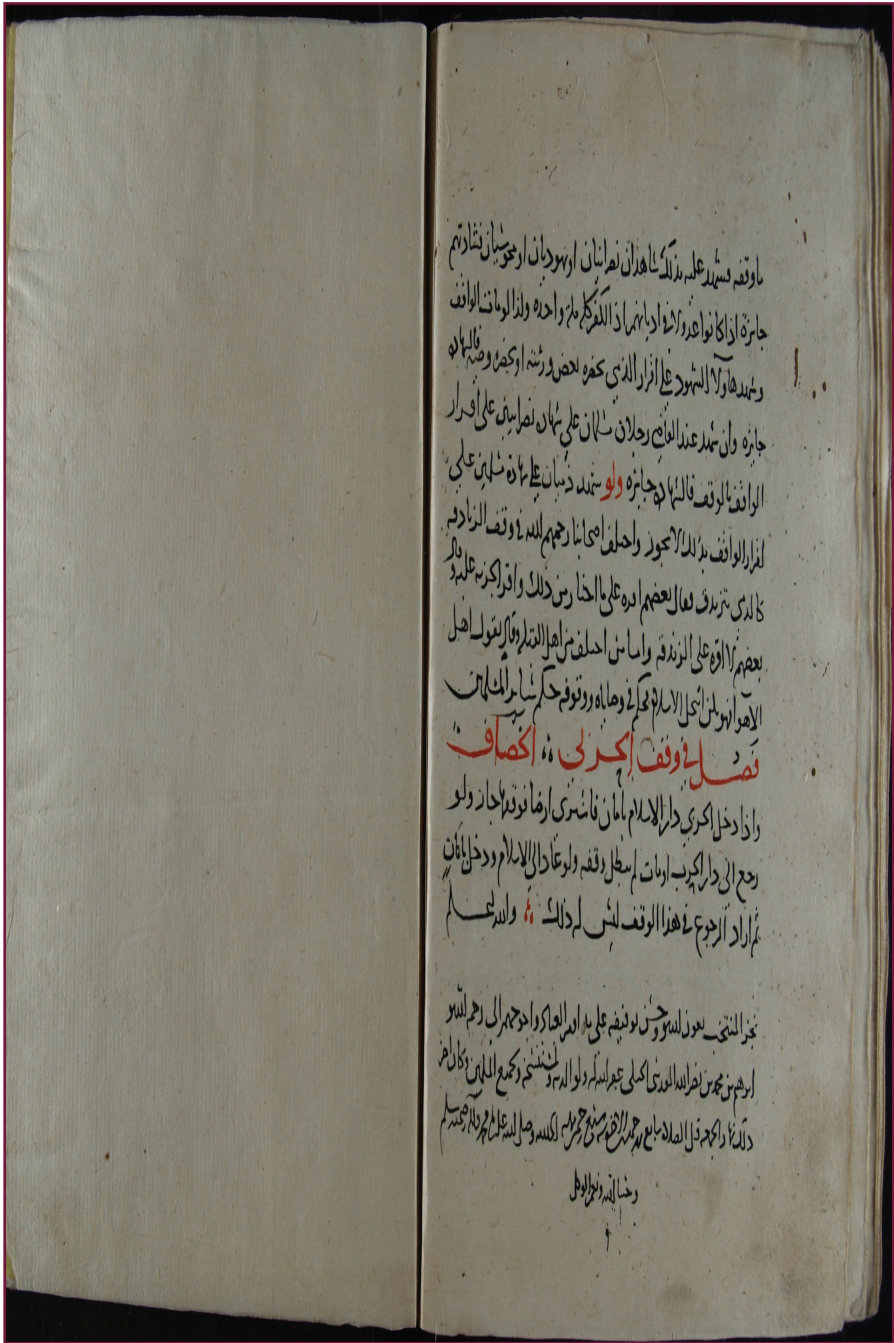 ما وقفه فيشهد عليه بذلك شاهدان نصرانيان او يهوديان او مجوسيان فشهادتهم
جائزة اذا كانوا عدولا في اديانهم اذ الكفر كله ملة واحدة ولذا لو مات الواقف
وشهد هاولا الشهود على اقرار الذمي بحضره بعض ورثته او بحضره وصيه فالشهادة
جائزه وان شهد عند القاضي رجلان مسلمان على شهاده نصرانيين على اقرار
الواقف بالوقف فالشهادة جايزه ولو شهد ذميان على شهادة مسلمين على
اقرار الواقف بذلك لا يجوز واختلف اصحابنا رحمهم الله في وقف الزنادقه
كالذى تزندق فقال بعضهم اقره على ما اختار من ذلك واقر الجزيه عليه وقال
بعضهم لا اقره على الزندقه واما من اختلف من اهل القبله وقال بقول اهل
الاهوا فهو لمن انتحل الاسلام يحكم في وصاياه ووقوفه حكم سائر المسلمين
فصل في وقف الحربى الخصاف
واذا دخل الحربي دار الاسلام بامان فاشترى ارضا فوقفها جاز ولو
رجع الى دار الحرب او مات لم يبطل وقفه ولو عاد الى الاسلام ودخل بامان
ثم اراد الرجوع في هذا الوقف ليس له ذلك والله اعلم
نجز المنتخب بعون الله وحسن توفيقه على يد افقر العباد واحوجهم الى رحمه الله
ابرهيم بن محمد بن نصر الله الحنبلى غفر الله له ولوالديه ولجميع المسلمين وكان اخر
ذلك نهار الجمعه قبل الصلاه وصلى الله على محمد وآله وصحبه وسلم
وحسبنا الله ونعم الوكيل